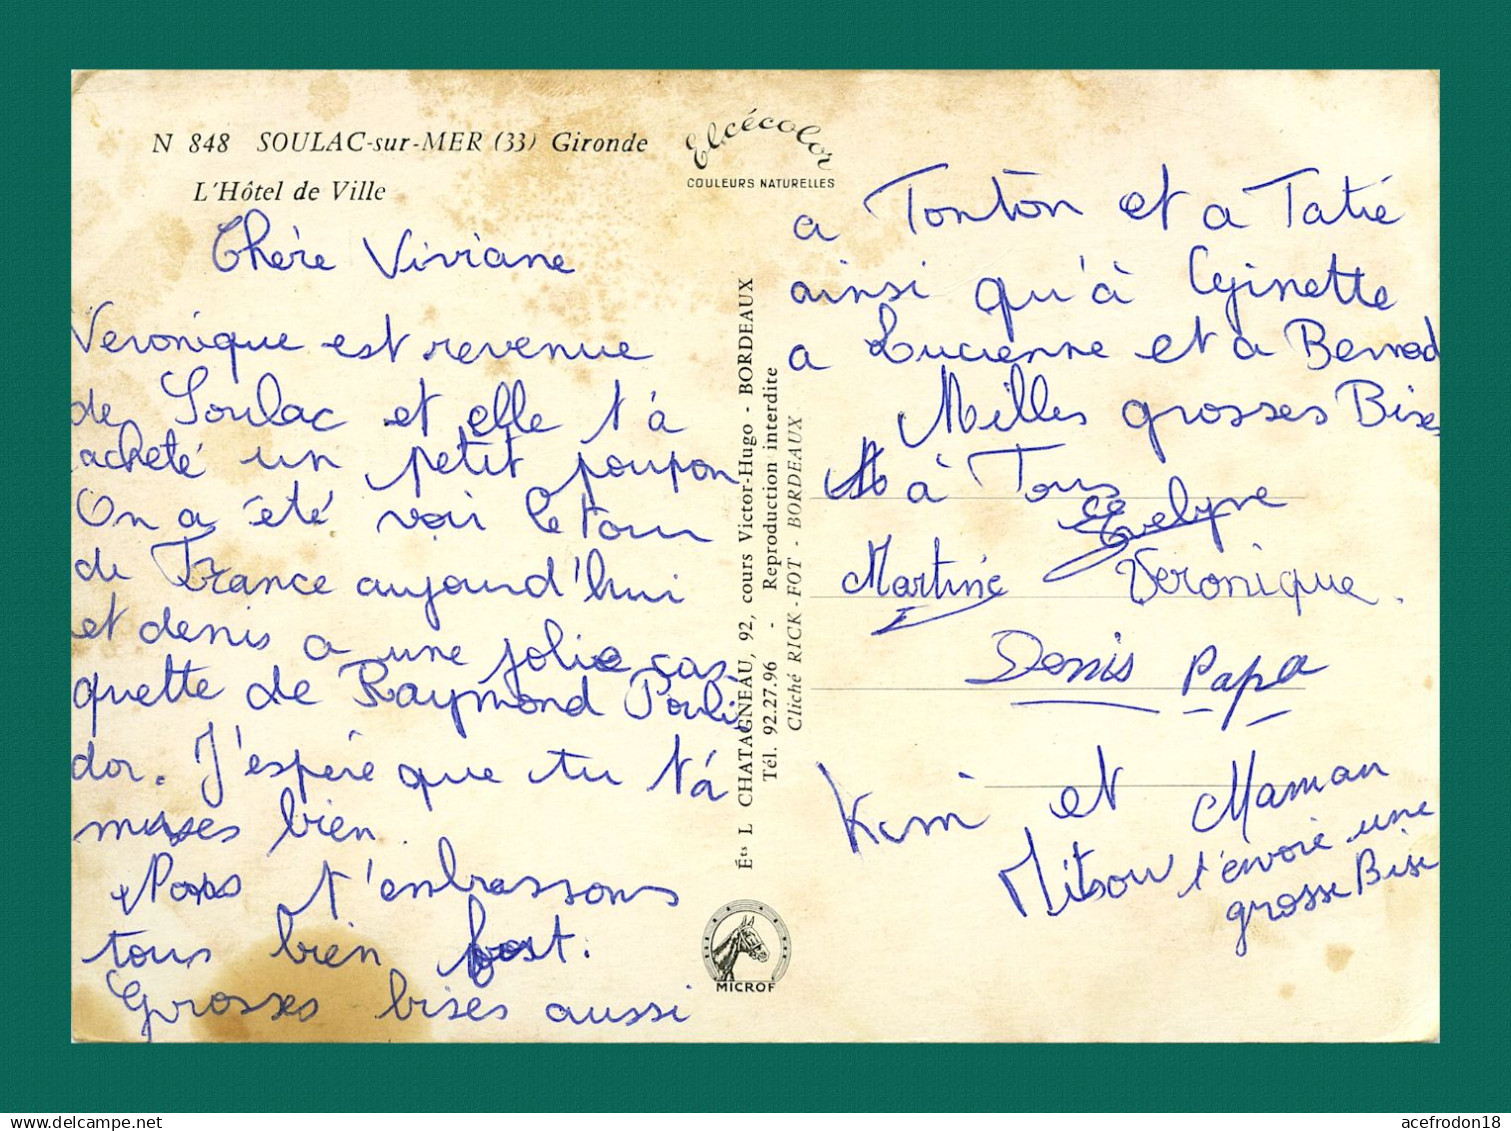 N 848 SOULAC-sur-MER (33) Gironde
L'Hôtel de Ville
Elcécolor
COULEURS NATURELLES
Chère Viviane
Veronique est revenue
de Soulac et elle t'à
acheté un petit poupon
On a été voir le tour
de France aujourd'hui
et denis a une jolie cas
quette de Raymond Pouli
dor. J'espére que tu t'á
muses bien
Nous t'embrassons
tous bien fort.
Grosses bises aussi
Éts L CHATAGNEAU, 92, cours Victor-Hugo - BORDEAUX
Tél. 92.27.96 - Reproduction interdite
Cliché RICK-FOT - BORDEAUX
MICROF
a Tonton et a Tatie
ainsi qu'à Ginette
a Lucienne et a Bernard
Milles grosses Bises
à Tous
Evelyne
Martine Veronique.
Denis Papa
Kim et Maman
Mitsou t'envoie une
grosse Bise
acefrodon18